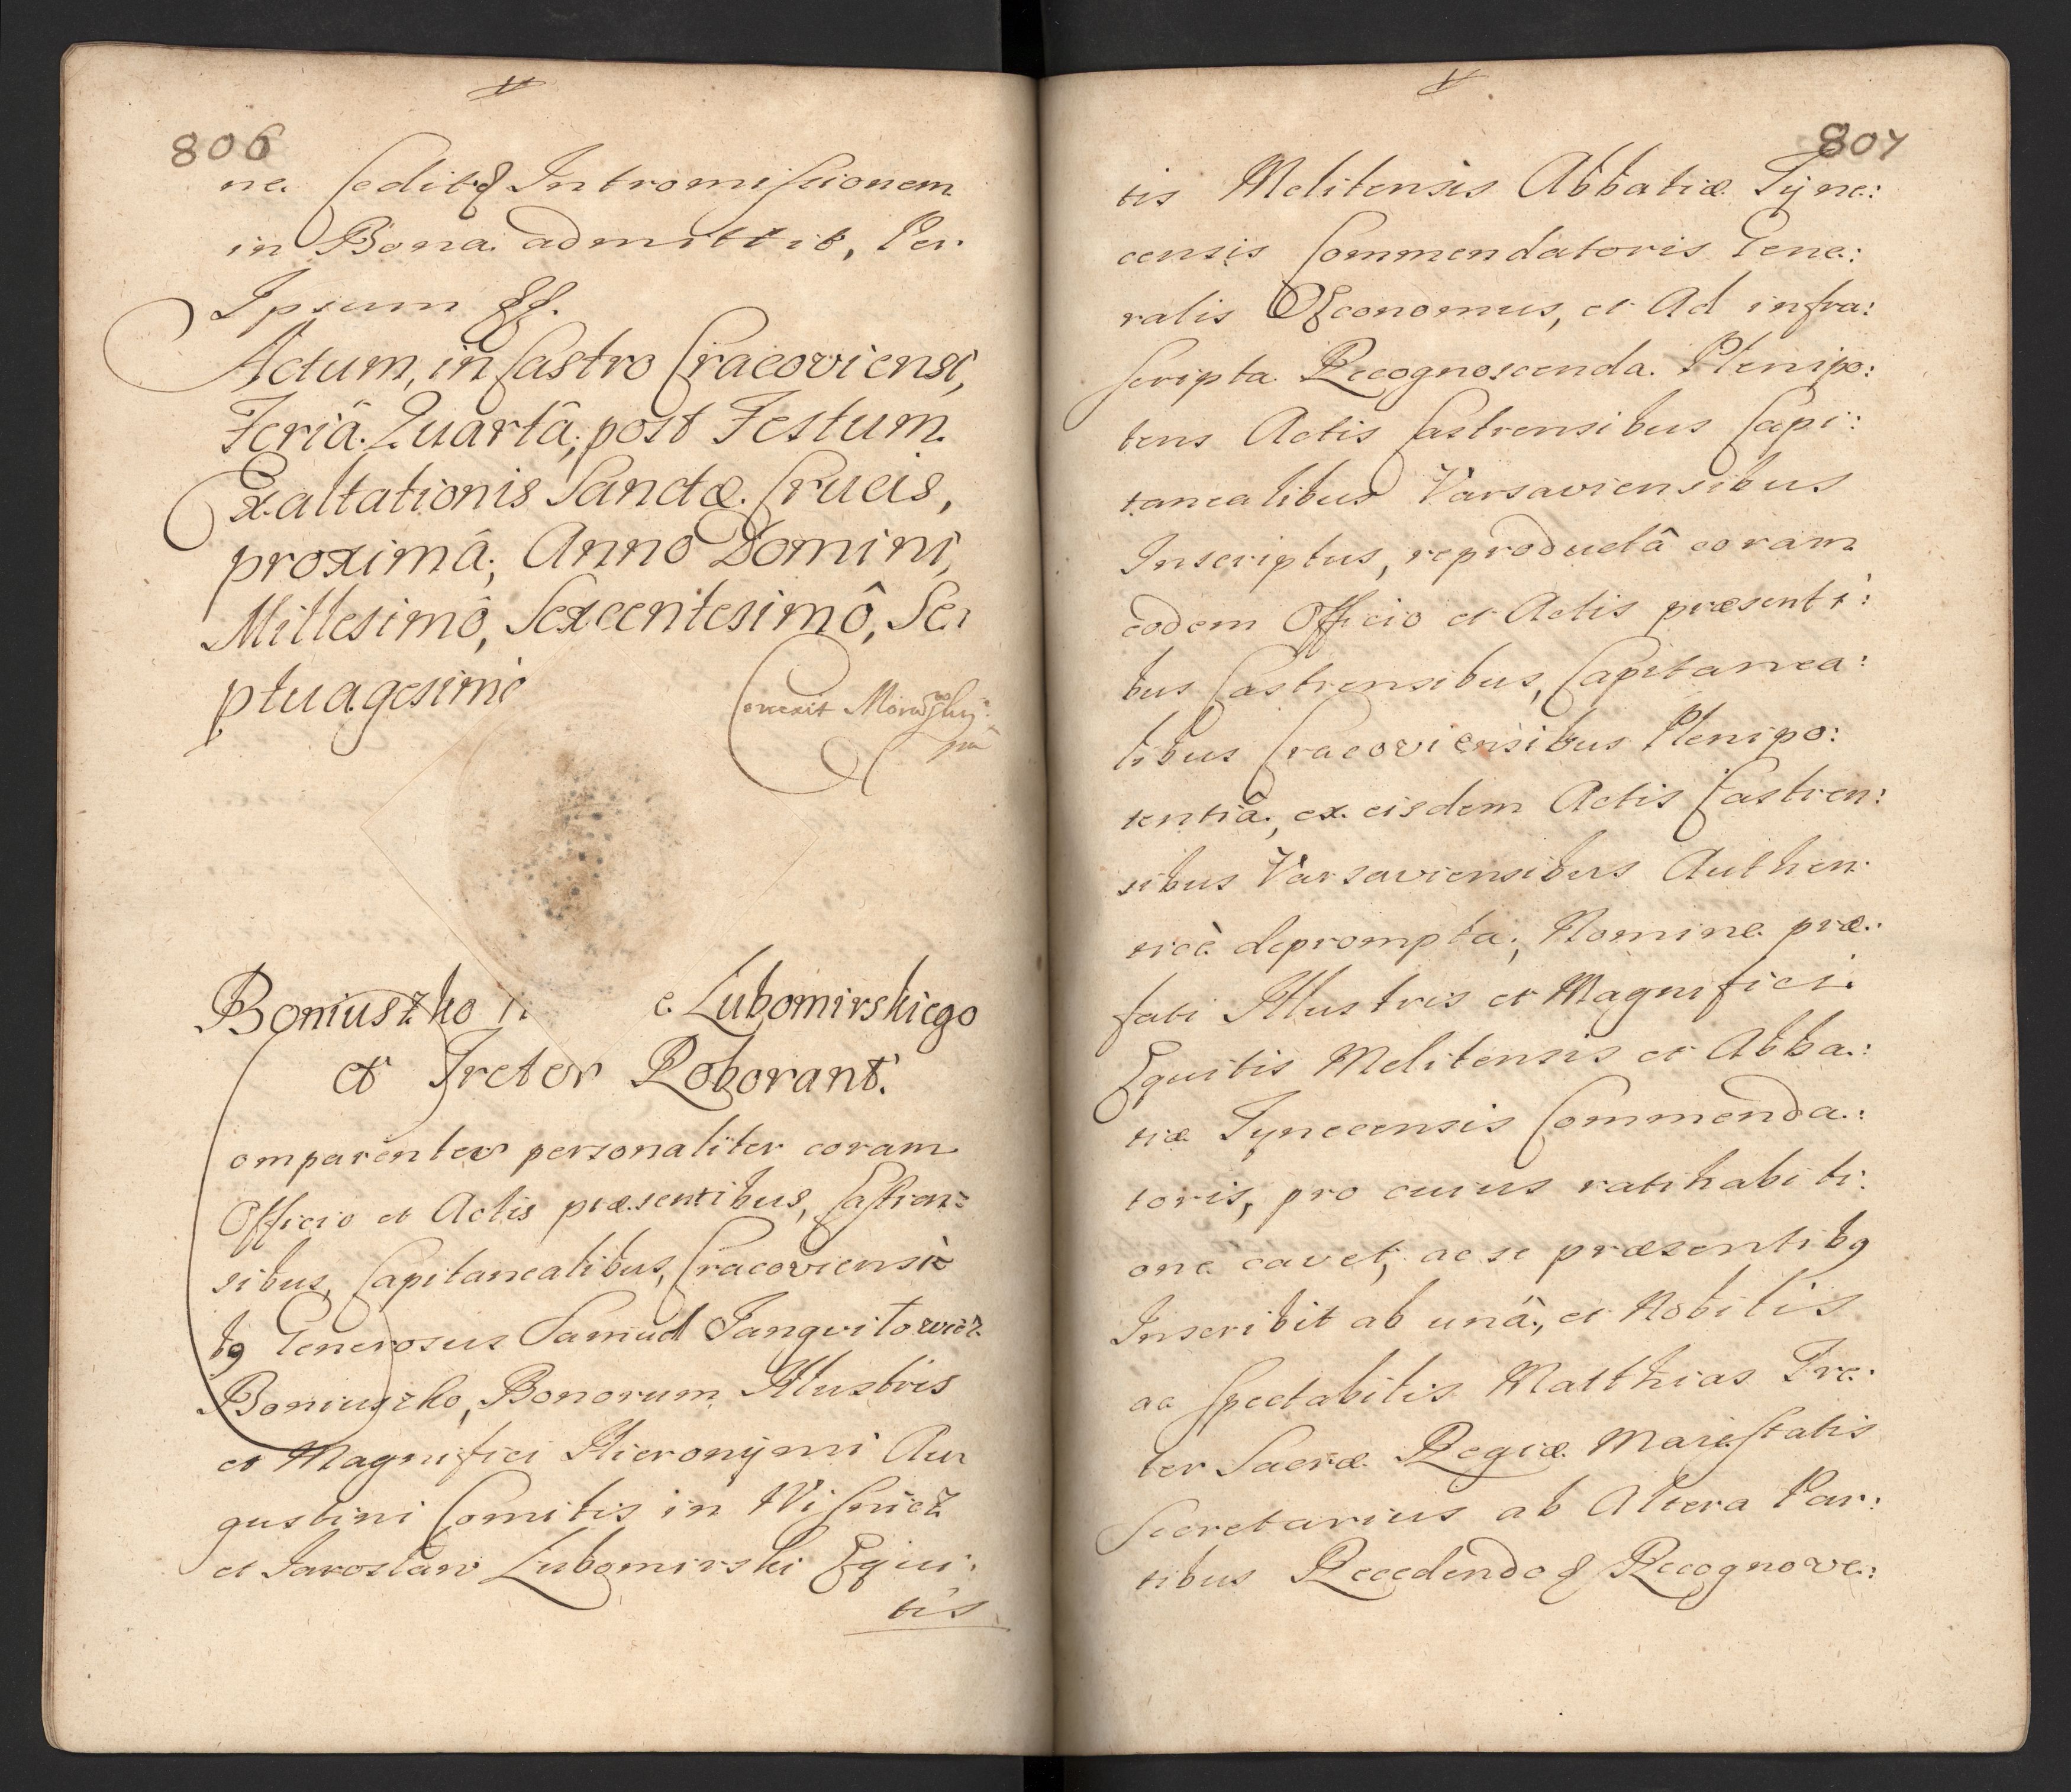 806
ne. Cedit & Intromissionem
in Bona admittit, Per
Ipsum &&.
Actum, in Castro Cracoviensi,
Feriâ Quartâ, post Festum
Exaltationis Sanctæ Crucis,
proximâ, Anno Domini,
Millesimô, Sexcentesimô, Se:
ptuagesimô
Correxit
Boniuszko e Lubomirskiego
et Freter Roborant.
Comparentes personaliter coram
Officio et Actis præsentibus, Castren:
sibus, Capitanealibus, Cracoviensi:
b9 Generosus Samuel Jangvitowicz
Boniuszko, Bonorum Illustris
et Magnifici Hieronÿmi Au:
gustini Comitis in Wisnicz
et Iaroslaw Lubomirski Equi:
tis
807
tis Melitensis Abbatiæ Tÿne:
censis Commendatoris Gene:
ralis Oeconomus, et Ad infra:
scripta Recognoscenda Plenipo:
tens Actis Castrensibus Capi:
tanealibus Varsaviensibus
Inscriptus, reproductâ coram
eodem Officio et Actis præsenti:
bus Castrensibus, Capitanea:
libus Cracoviensibus Plenipo:
tentiâ, ex eisdem Actis Castren:
sibus Varsaviensibus Authen:
ticè deprompta, Nomine præ:
fati Illustris et Magnifici
Equitis Melitensis et Abba:
tiæ Tynecensis Commenda:
toris, pro cuius ratihabiti:
one cavet, ac se præsentib9
Inscribit ab unâ, et Nobilis
ac Spectabilis Matthias Fre:
ter Sacræ Regiæ Maiestatis
Secretarius ab Altera Par:
tibus Recedendo & Recognove: